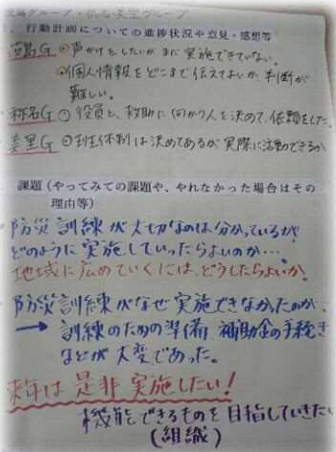 グループ・称名・美里グループ
1. 行動計画についての進捗状況や意見・感想等
G ①声かけをしたいがまだ実施できていない。
②個人情報をどこまで伝えてよいか判断が
難しい。
称名G ① 役員と、救助に向かう人を決めて、依頼をした。
美里G ①班体制は決めてあるが実際に活動できるか
課題(やってみての課題や、やれなかった場合はその
理由等)
防災訓練が大切なのは分かっているが
どのように実施していったらよいのか…
地域に広めていくには、どうしたらよいか。
防災訓練がなぜ実施できなかったのか
→ 訓練のための準備、補助金の手続き
などが大変であった。
来年は是非実施したい!
機能できるものを目指していきたい
(組織)